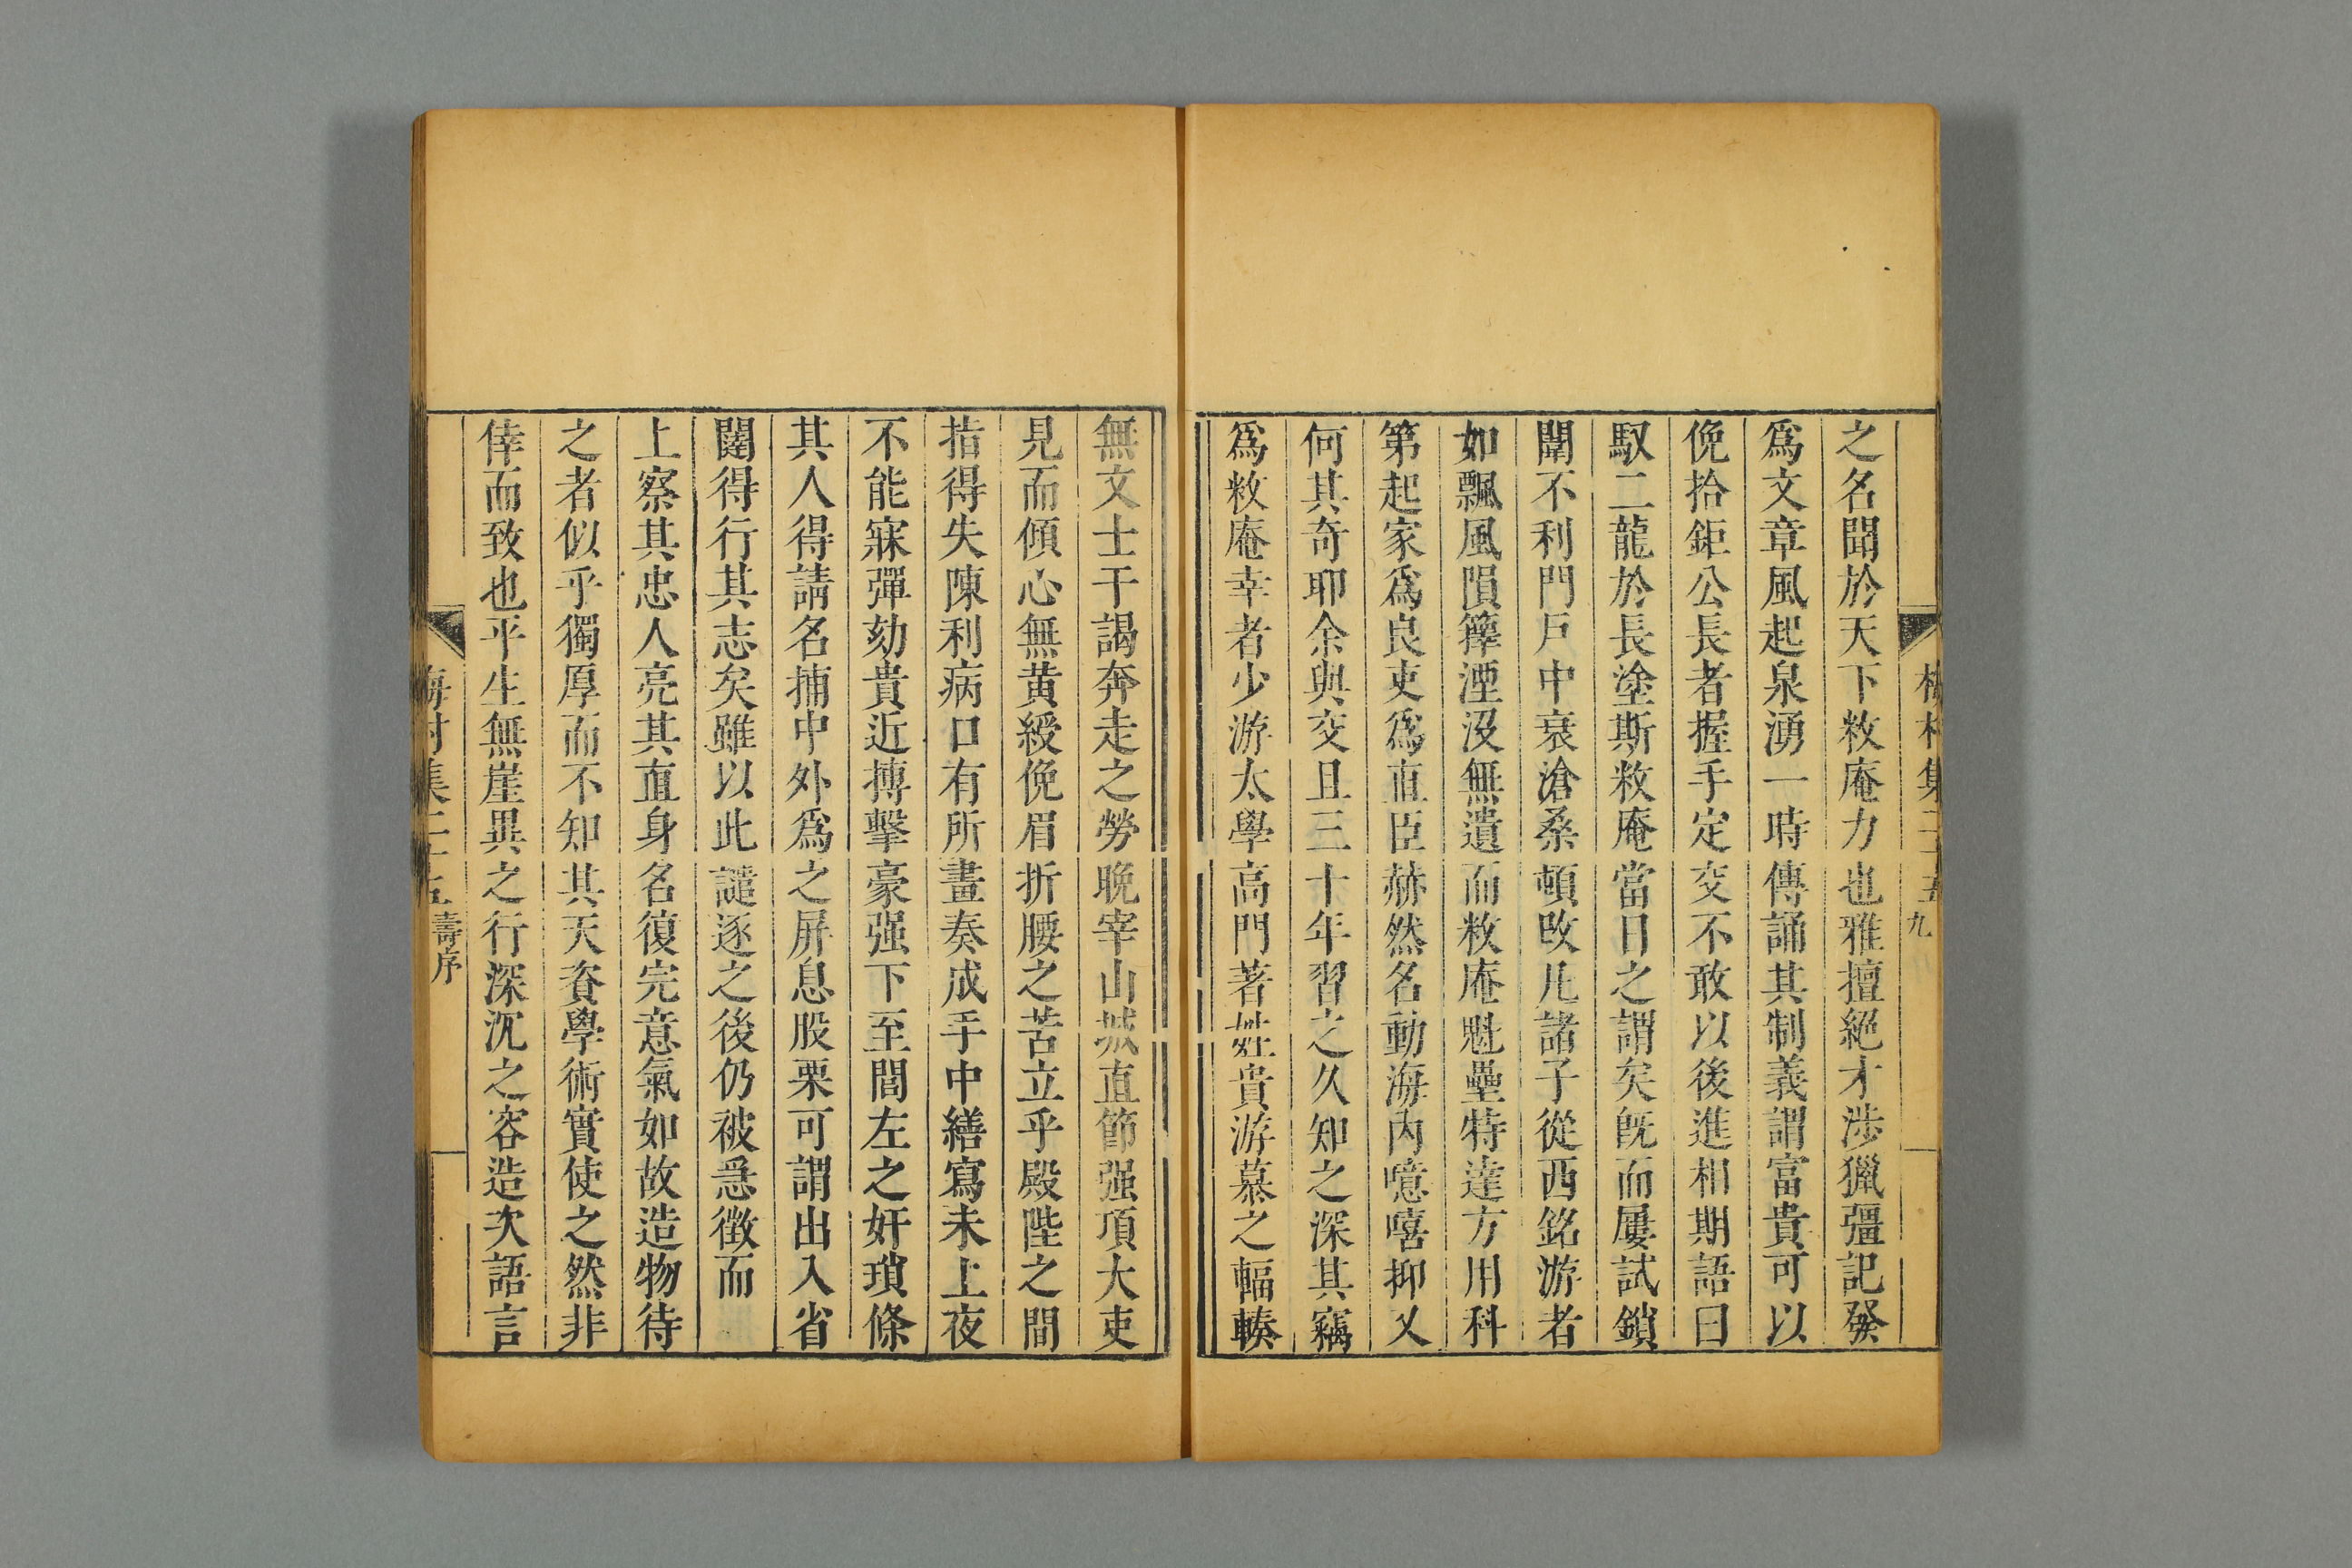 梅村集二十五 九
之名聞於天下敉庵力也雅擅絕才渉獵彊記發
爲文章風起泉湧一時傳誦其制義謂富貴可以
俛拾鉅公長者握手定交不敢以後進相期語曰
馭二龍於長塗斯敉庵當日之謂矣旣而屢試鎖
闈不利門戸中衰滄桑頓改凡諸子從西銘游者
如飄風隕籜湮沒無遺而敉庵魁壘特達方用科
第起家爲良吏爲直臣赫然名動海內噫嘻抑又
何其奇耶余與交且三十年習之久知之深其竊
爲敉庵幸者少游太學高門著姓貴游慕之輻輳
無文士干謁奔走之勞晚宰山城直節强項大吏
見而傾心無黄綬俛眉折腰之苦立乎殿陛之間
指得失陳利病口有所畫奏成手中繕寫未上夜
不能寐彈劾貴近搏擊豪强下至閭左之奸瑣條
其人得請名捕中外爲之屏息股栗可謂出入省
闥得行其志矣雖以此譴逐之後仍被惎徴而
上察其忠人亮其直身名復完意氣如故造物待
之者似乎獨厚而不知其天資學術實使之然非
倖而致也平生無崖異之行深沉之容造次語言
梅村集二十五 壽序